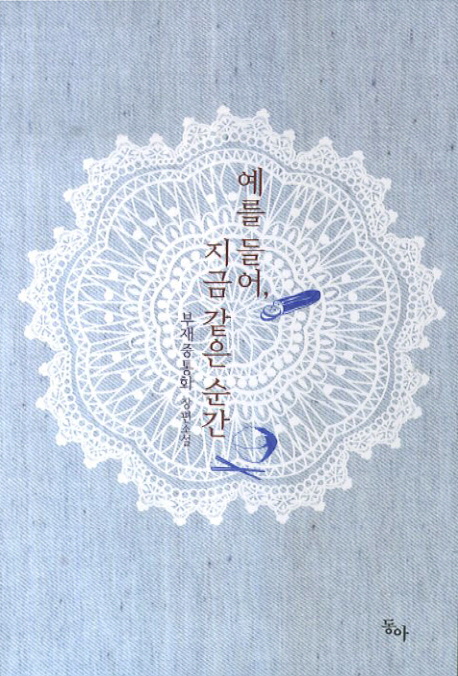 예를 들어,
지금 같은 순간
부재중통화 장편소설
동아